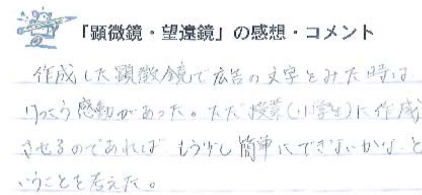 「顕微鏡・望遠鏡」の感想・コメント
作成した顕微鏡で広告の文字をみた時は
けっこう感動があった。ただ授業(小学生)に作成
させるのであれば もう少し簡単にできないかな、と
いうことを考えた。